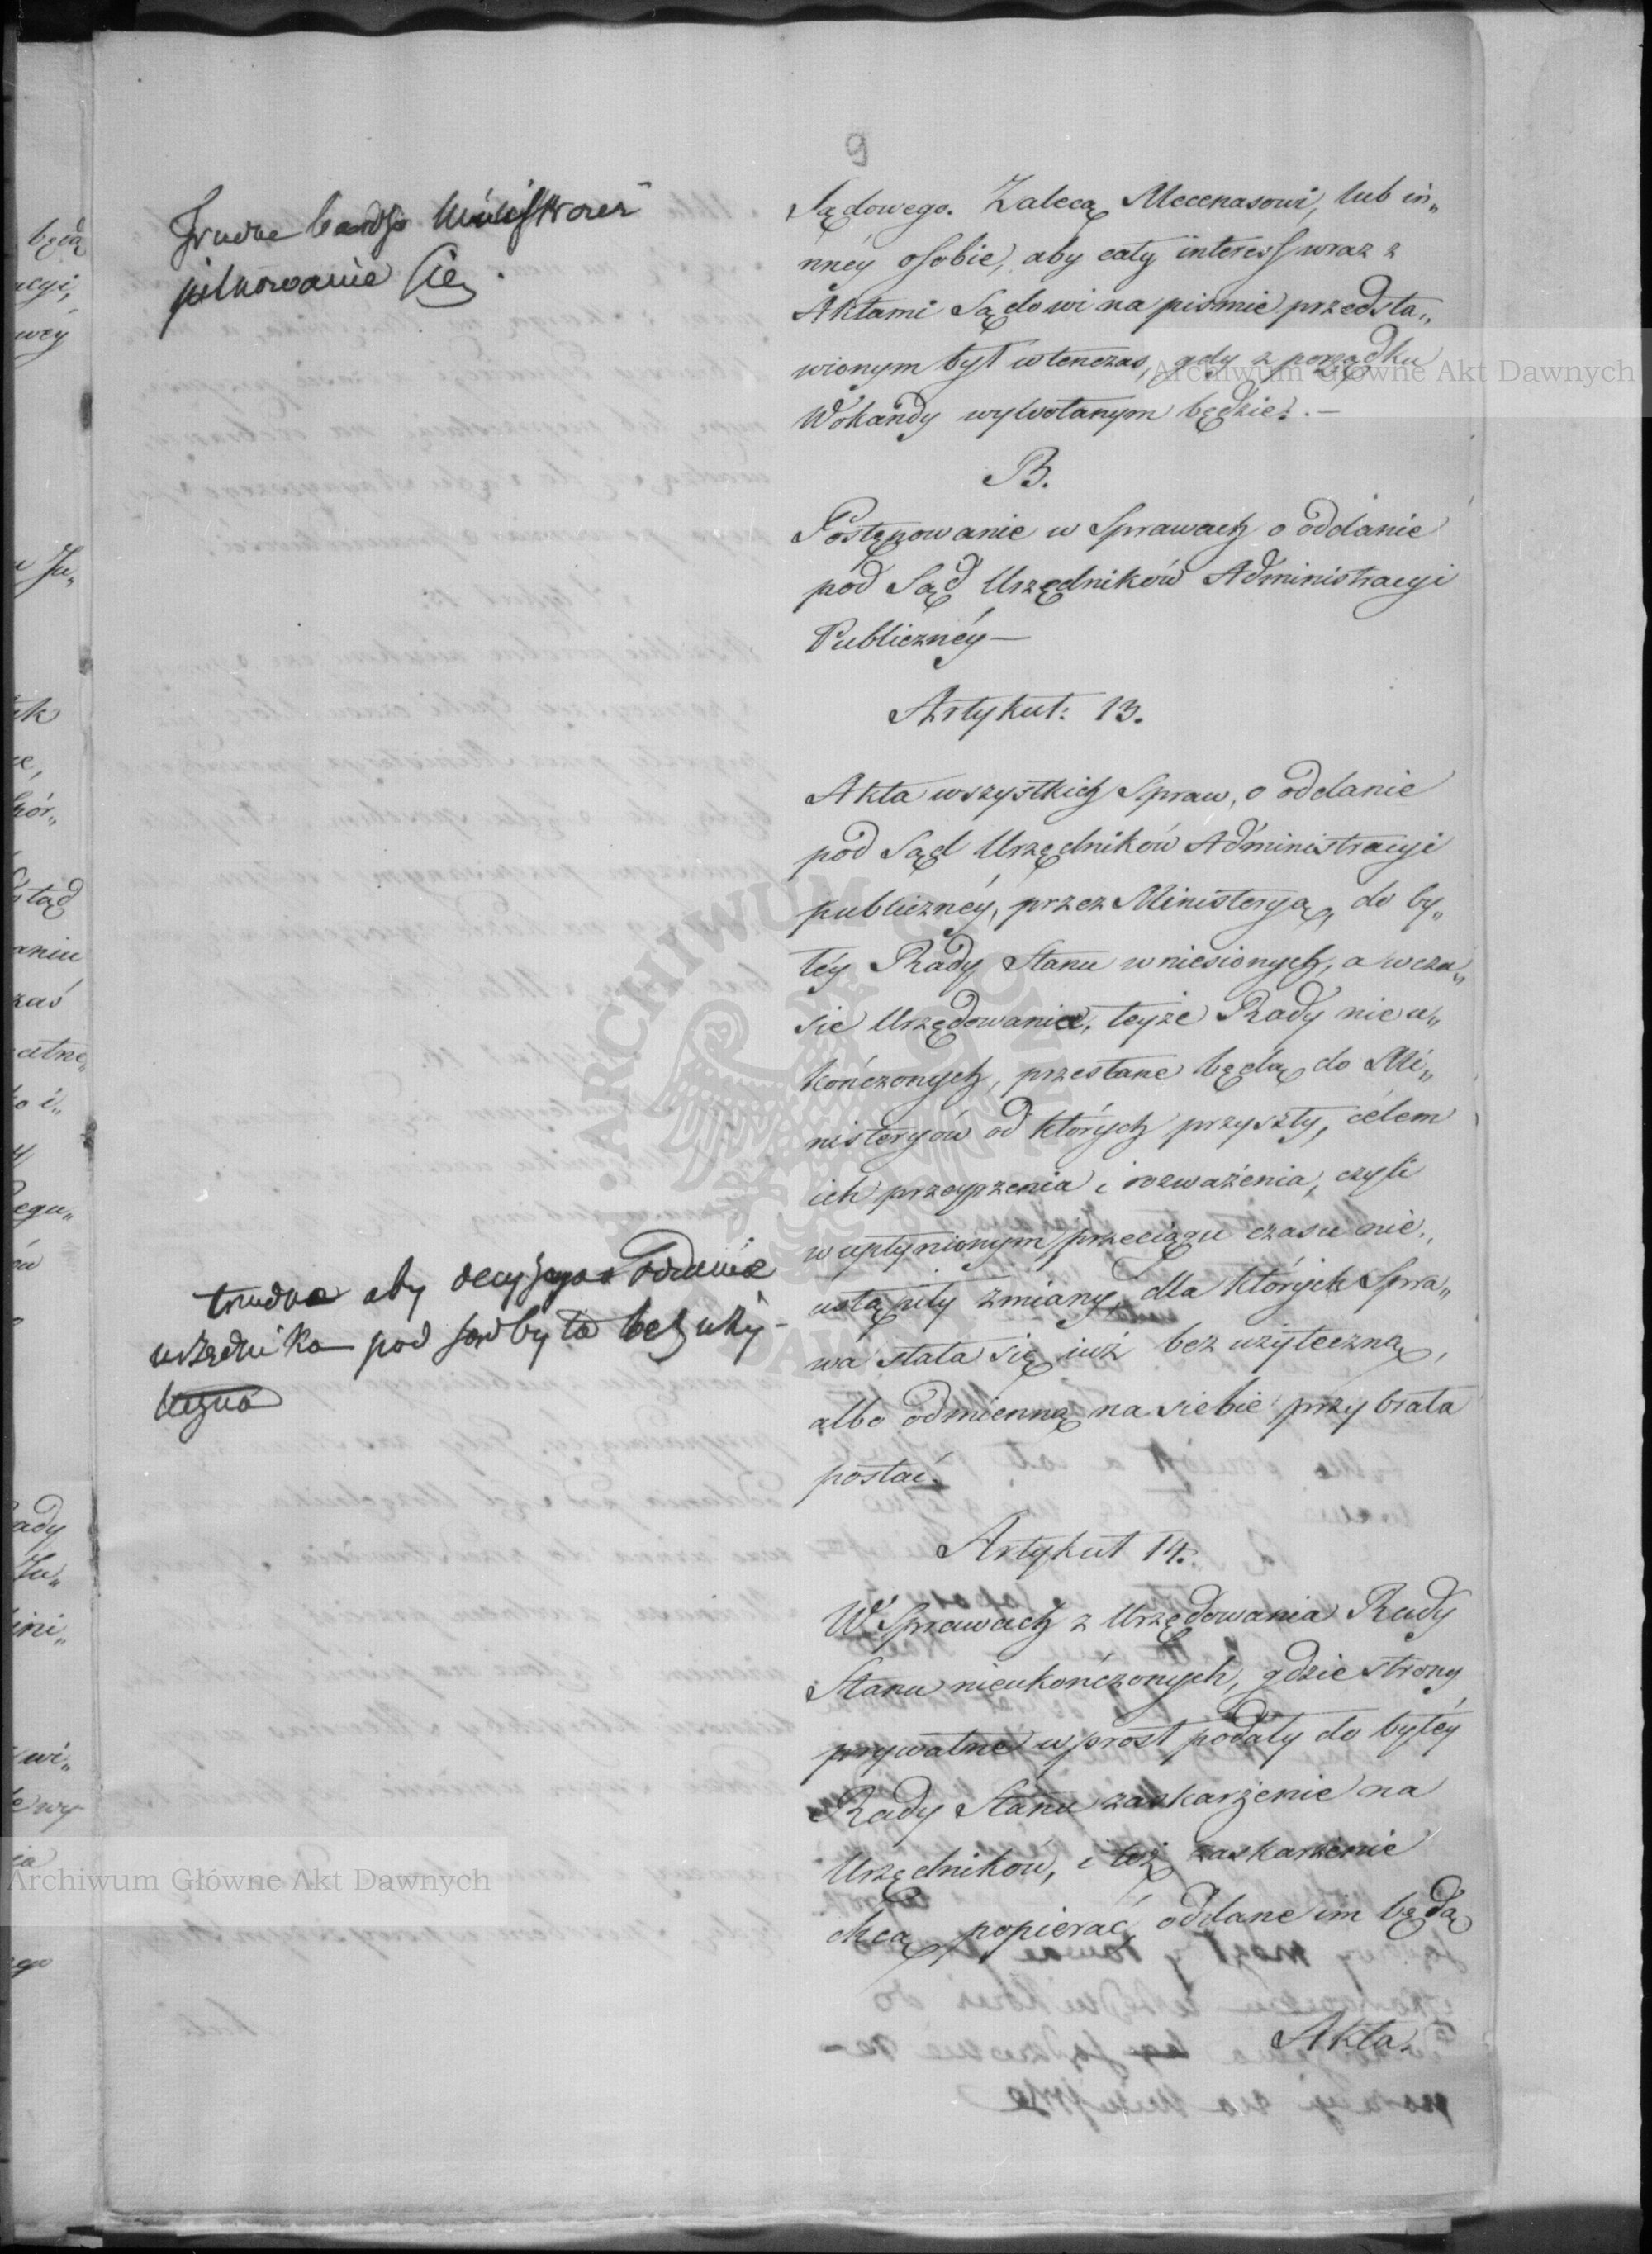 9
Trudne bardzo Ministrowi
pilnowanie się.
Sądowego. Zalecą Mecenasowi, lub in„
nnéy osobie, aby cały interess wraz z
Aktami Sądowi na pismie przedsta„
wionym był wtenczas, gdy z porządku
Wokandy wywołanym będzie. —
B.
Postępowanie w Sprawach o oddanie
pod Sąd Urzędników Administracyi
Publicznéy —
Artykuł: 13.
Akta wszystkich Spraw, o oddanie
pod Sąd Urzędników Administracyi
publicznéy, przez Ministerya, do by„
łéy Rady Stanu wniesionych, a w cza„
sie Urzędowania, teyże Rady nieu„
kończonych, przesłane będą do Mi„
nisteryów od których przyszły, celem
ich przeyrzenia i rozważenia, czyli
w upłynionym przeciągu czasu nie„
ustąpiły zmiany, dla których Spra„
wa stała się iuż bez użyteczną,
albo odmienną na siebie przybrała
postać.
trudno aby decyzya o oddanie
urzędnika pod sąd była bezuży-
teczna
Artykuł 14.
W Sprawach z Urzędowania Rady
Stanu nieukończonych, gdzie strony
prywatne wprost podały do byłéy
Rady Stanu zaskarżenie na
Urzędników, i też zaskarżenie
chcą popierać, oddane im będą
Akta.
Archiwum Główne Akt Dawnych
Archiwum Główne Akt Dawnych